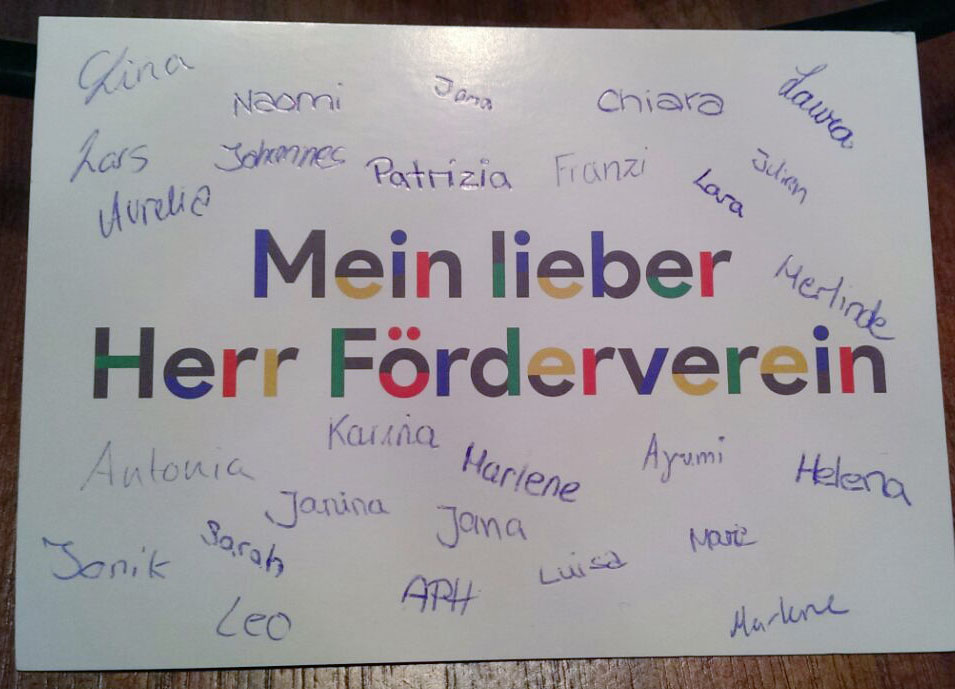 Lina
Naomi
Jana
Chiara
Laura
Lars
Johannes
Patrizia
Franzi
Lara
Julian
Aurelia
Mein lieber
Merlinde
Herr Förderverein
Karina
Antonia
Marlene
Ayumi
Helena
Janina
Jana
Sarah
Janik
Luisa
APH
Leo
Marlene